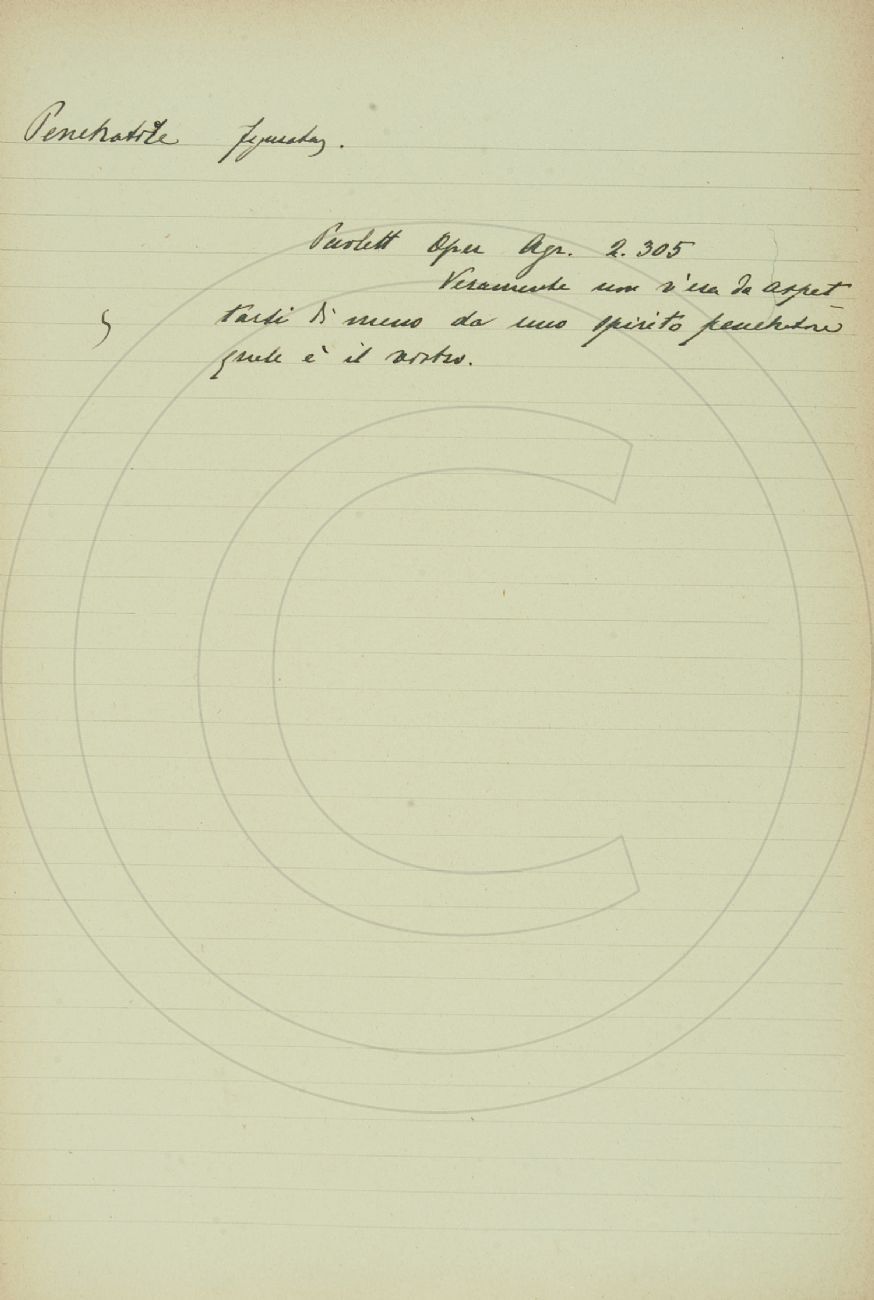 Penetratore figurataz.
Paolett Oper Agr. 2.305
Veramente non v'era da aspet
tarsi di meno da uno spirito penetratore
quale è il vostro.